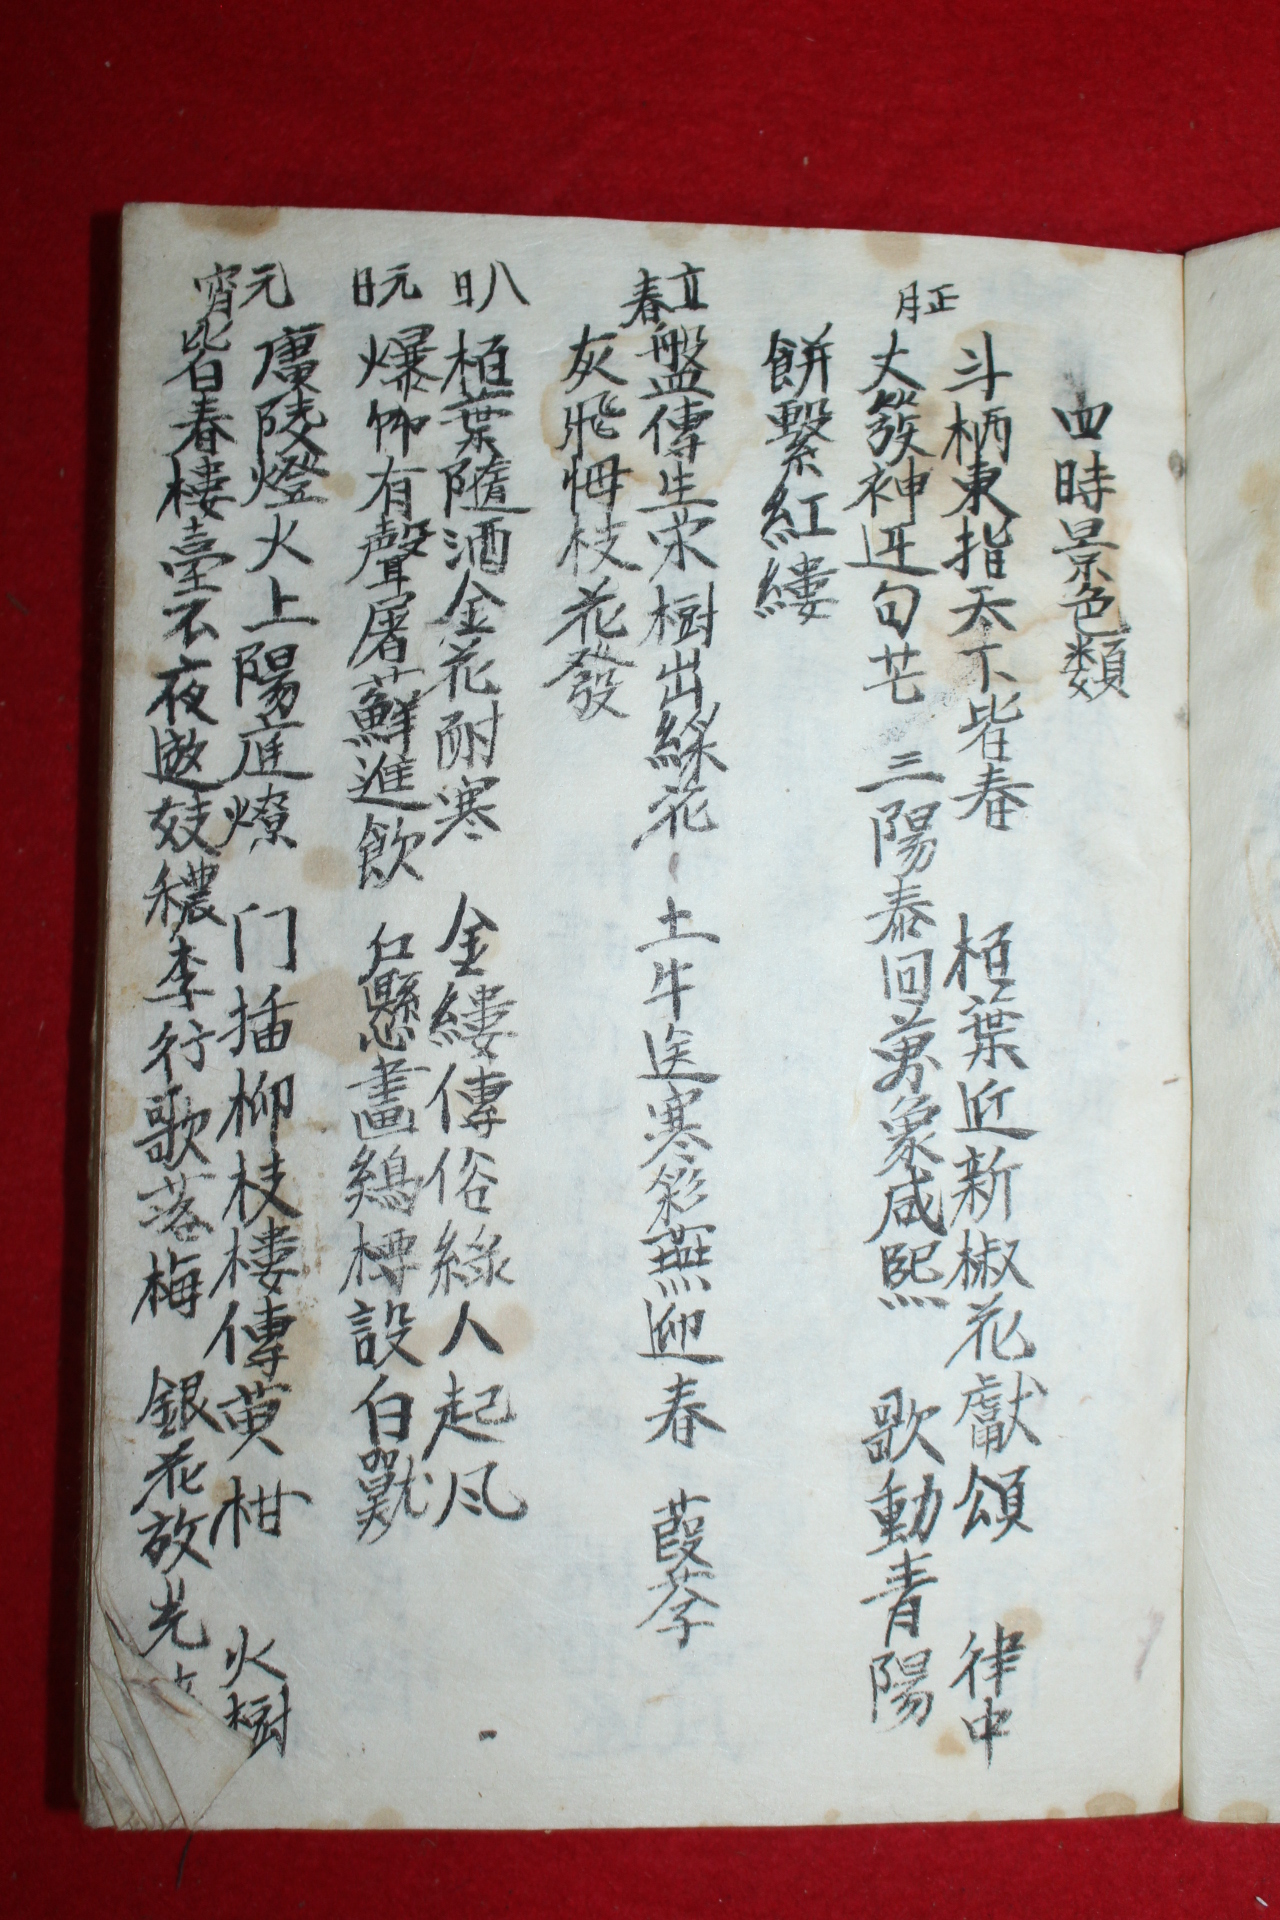 四時景色類
正月
斗柄東指天下皆春 栢葉近新椒花獻頌 律中
太簇神迓句芒 三陽泰回萬象咸熙 歌動青陽
餠繫紅縷
立春
盤傳生菜樹出綵花 土牛送寒彩燕迎春 葭莩
灰飛梅枝花發
人日
栢葉隨酒金花耐寒 金縷傳俗綠人起風
元日
爆竹有聲屠蘇進飮 仁懸畫鷄樽設白獸
元宵
廣陵燈火上陽庭燎 门揷柳枝樓傳黄柑 火樹
皆春樓臺不夜遊妓穠李行歌落梅 銀花放光